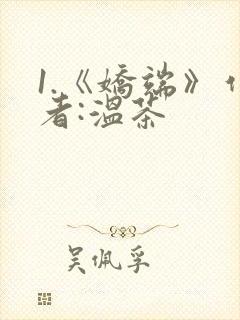 1.《嬌端》作
者:溫茶
吳佩孚